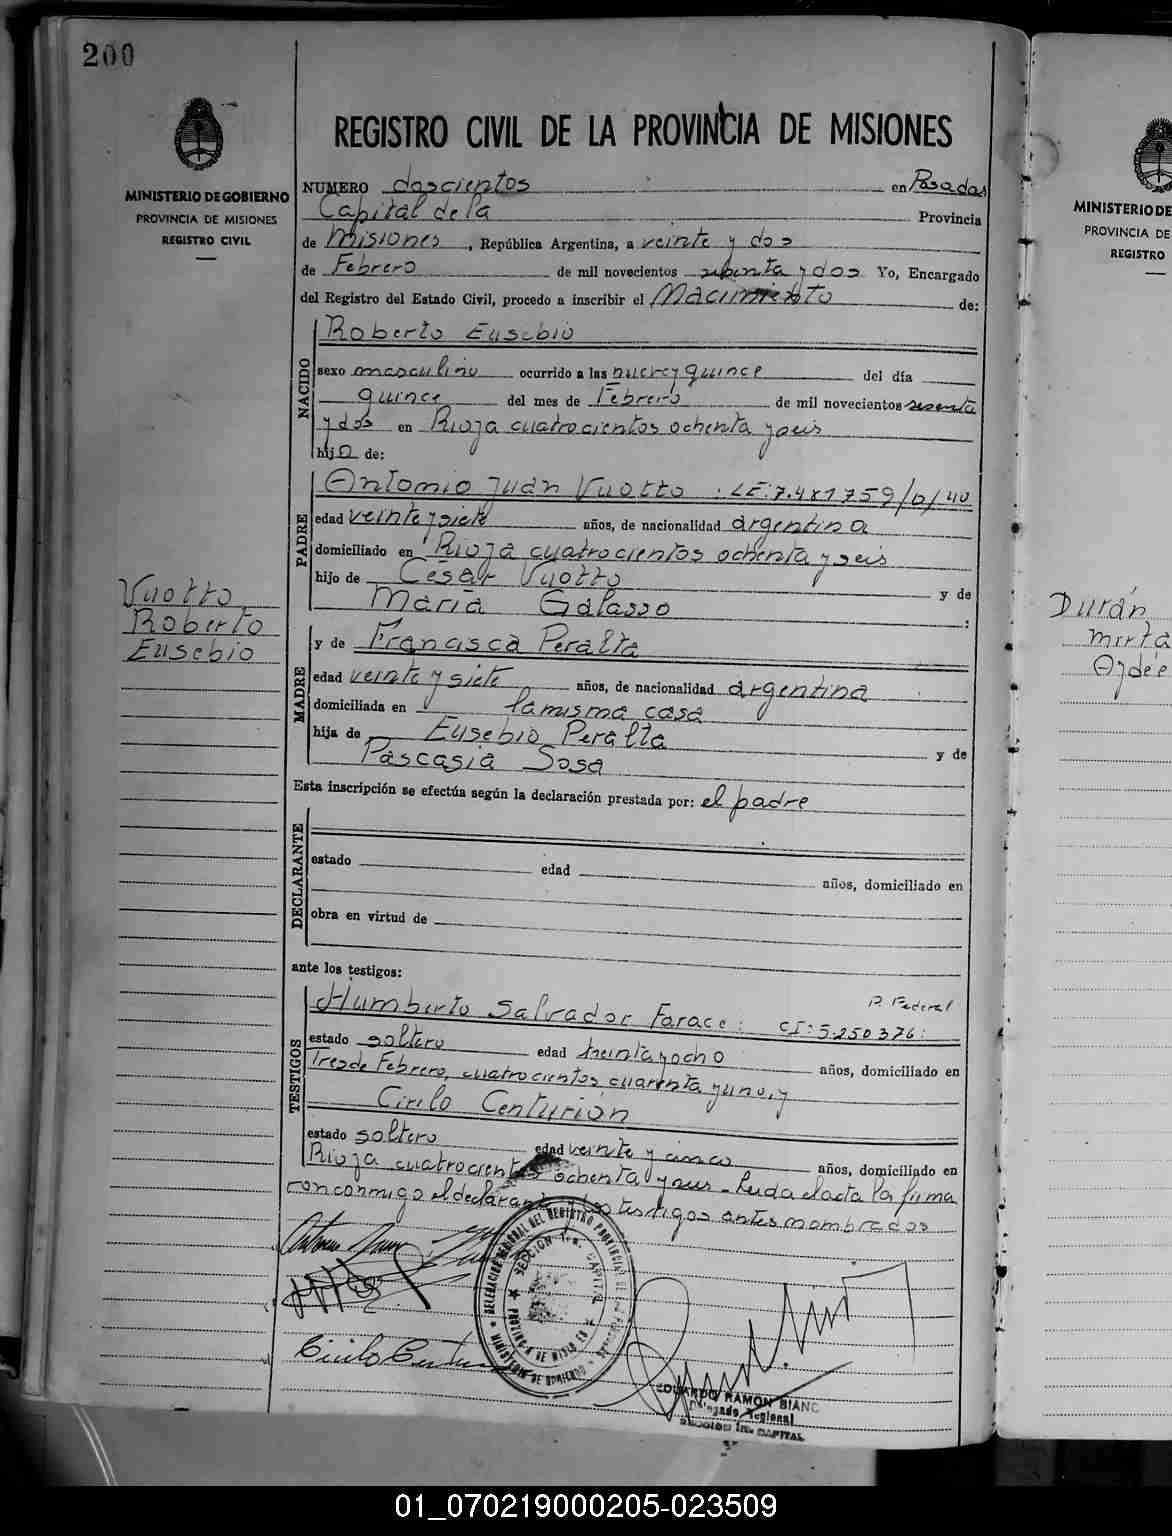 200
REGISTRO CIVIL DE LA PROVINCIA DE MISIONES
MINISTERIO DE GOBIERNO
PROVINCIA DE MISIONES
REGISTRO CIVIL
NUMERO doscientos en Posadas
Capital de la Provincia
de Misiones, República Argentina, a veinte y dos
de Febrero de mil novecientos y dos Yo, Encargado
del Registro del Estado Civil, procedo a inscribir el Nacimiento de:
NACIDO
Roberto Eusebio
sexo masculino ocurrido a las nueve y quince del día
quince del mes de Febrero de mil novecientos sesenta
y dos en Rioja cuatrocientos ochenta y seis
hijo de:
PADRE
Antonio Juan Vuotto : LE: 7.481759/D/40
edad veinte y siete años, de nacionalidad argentina
domiciliado en Rioja cuatrocientos ochenta y seis
hijo de César Vuotto y de
María Galasso :
Vuotto,
Roberto
Eusebio
MADRE
y de Francisca Peralta
edad veinte y siete años, de nacionalidad argentina
domiciliada en la misma casa
hija de Eusebio Peralta y de
Pascasia Sosa
Esta inscripción se efectúa según la declaración prestada por: el padre
DECLARANTE
estado edad años, domiciliado en
obra en virtud de
ante los testigos:
TESTIGOS
Humberto Salvador Farace: CI: 5.250376: P. Federal
estado soltero edad treinta y ocho años, domiciliado en
Tres de Febrero, cuatrocientos cuarenta y uno, y
Cirilo Centurión
estado soltero edad veinte y cinco años, domiciliado en
Rioja cuatrocientos ochenta y seis - Leída el acta la firma
con conmigo el declarante y los testigos antes nombrados
Cirilo
DELEGACION REGIONAL DEL REGISTRO PROVINCIAL DE LAS
SECCION 1ra. CAPITAL
PROVINCIA DE MISIONES
MINISTERIO DE GOBIERNO
EDUARDO RAMON BIANC
Delegado Regional
SECCION 1ra. CAPITAL
MINISTERIO DE
PROVINCIA DE
REGISTRO
Durán
Mirta
Aydée
01_070219000205-023509